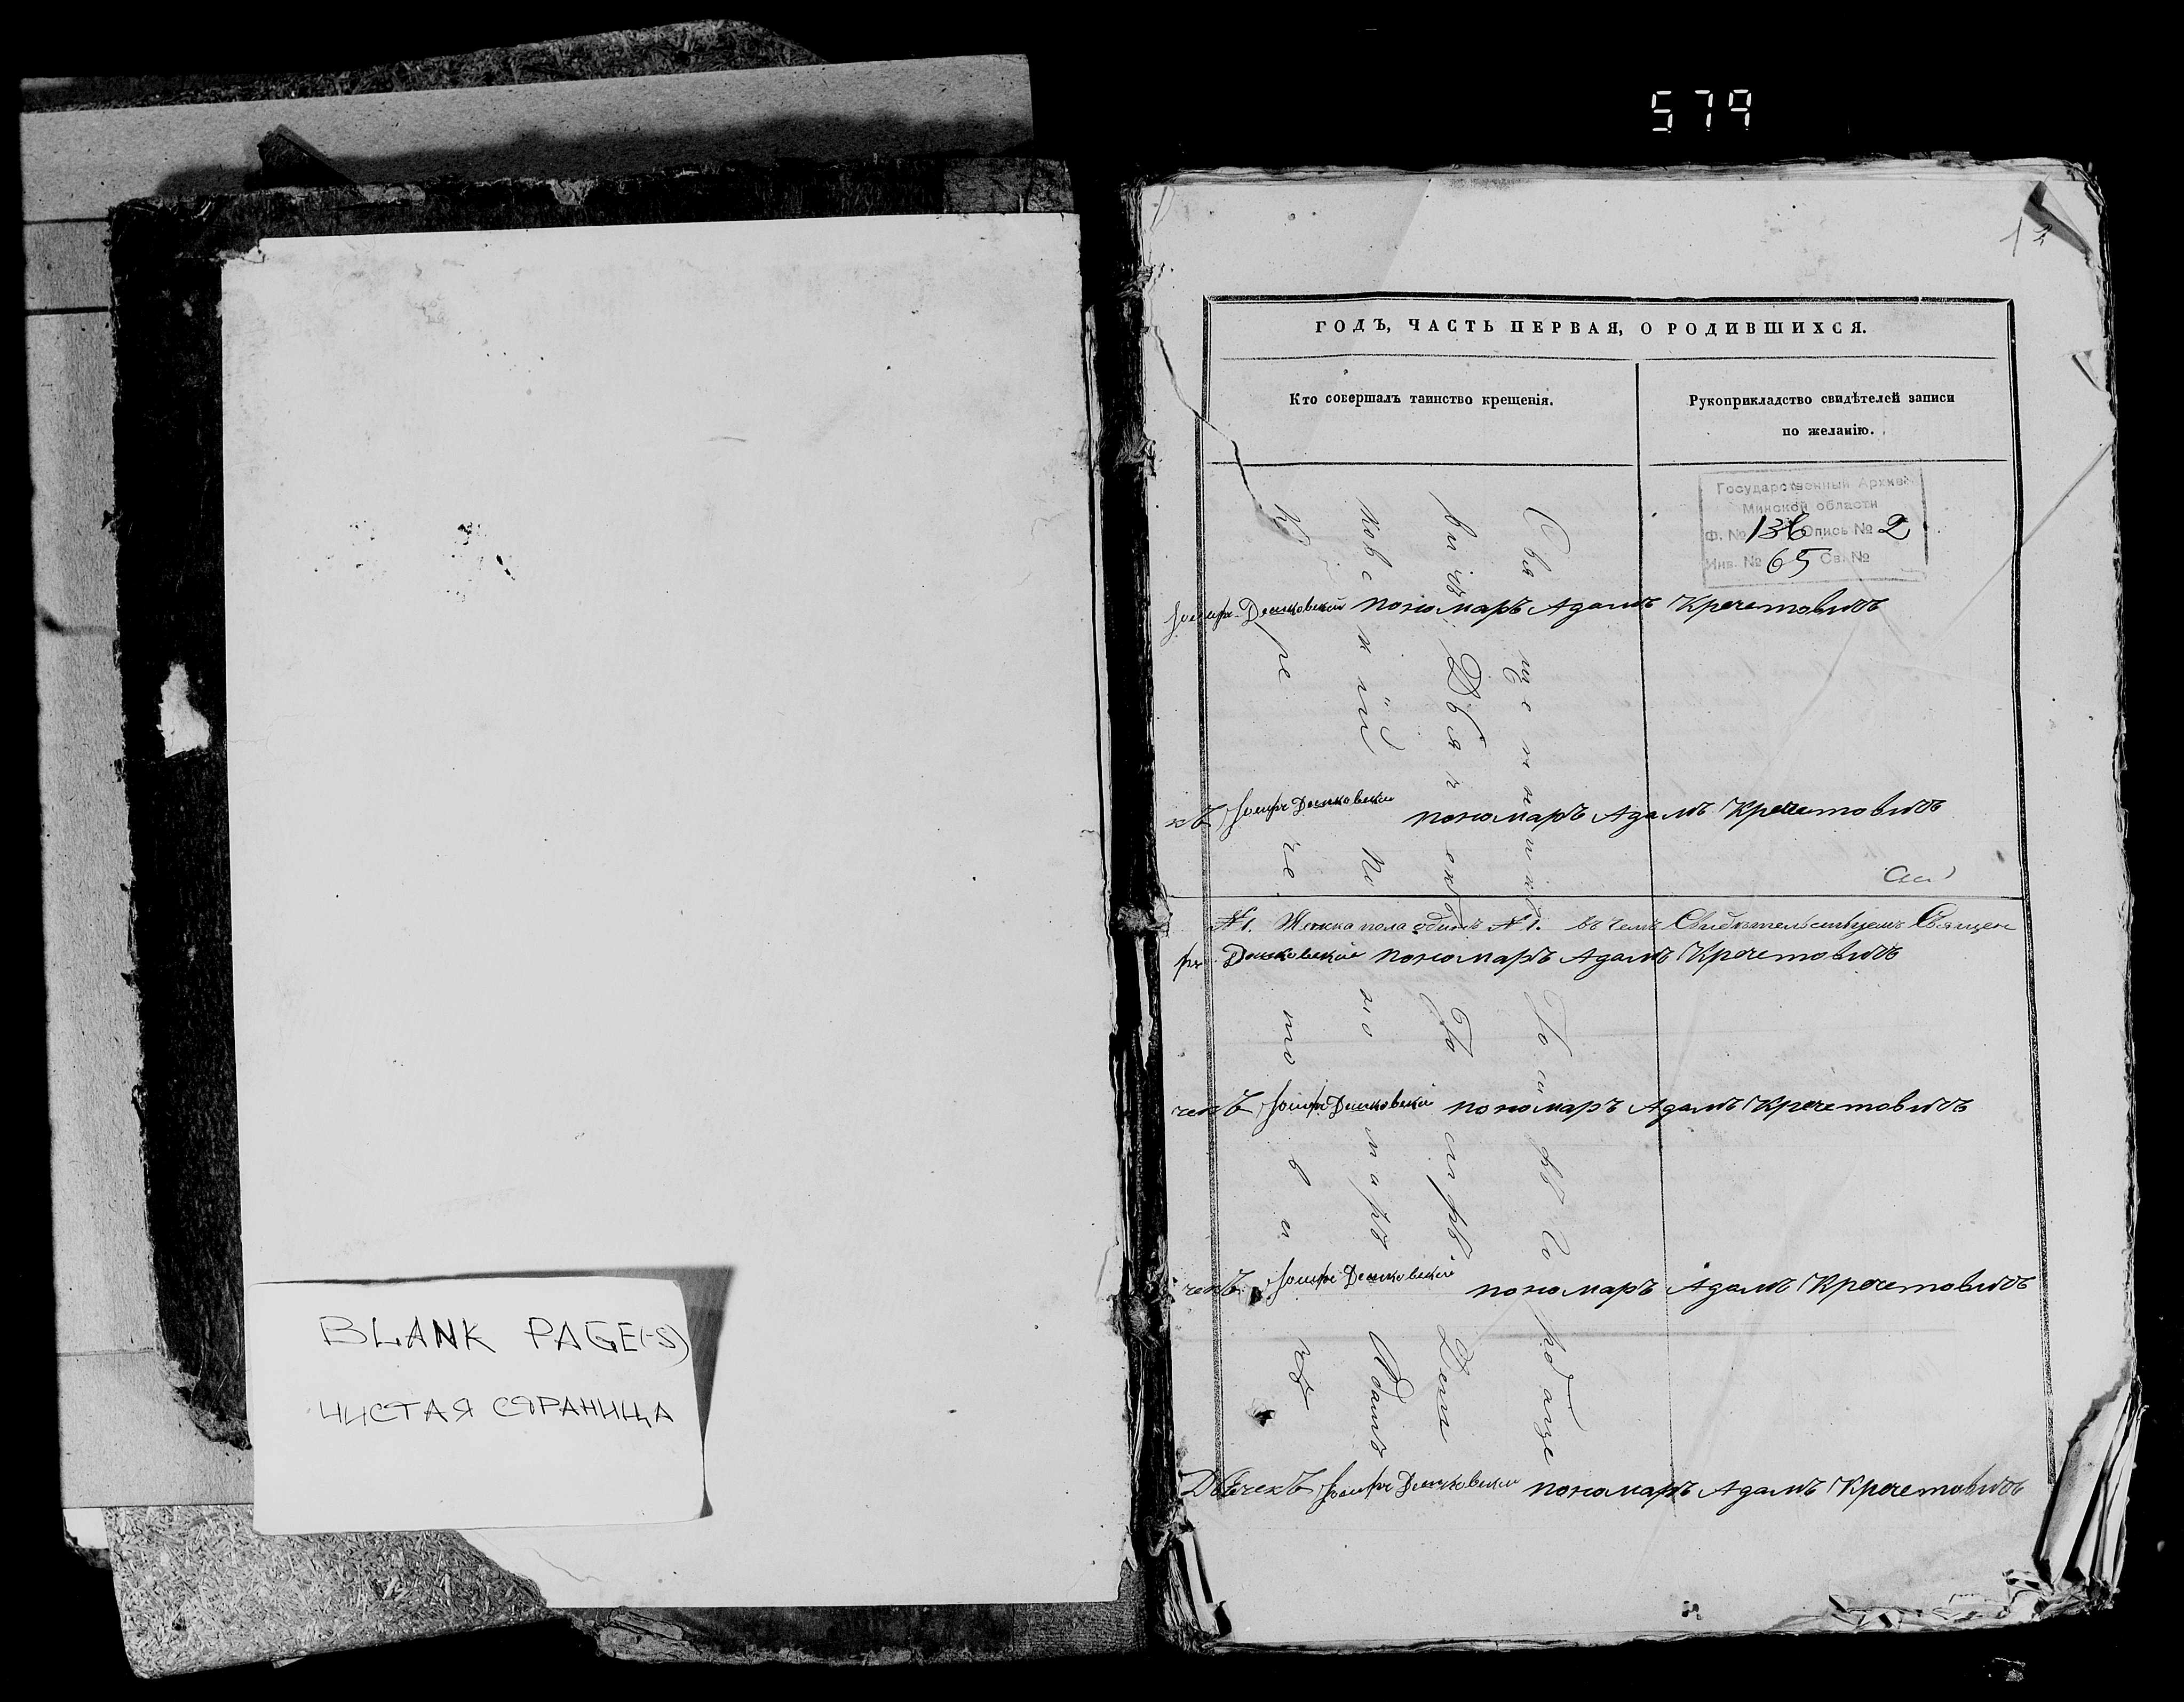 579
BLANK PAGE(-S)
ЧИСТАЯ СТРАНИЦА
1
ГОДЪ, ЧАСТЬ ПЕРВАЯ, О РОДИВШИХСЯ.
Кто совершалъ таинство крещенія.
Рукоприкладство свидѣтелей записи
по желанію.
Государственный Архив
Минской области
Ф. № 136 Опись № 2
Инв. № 65 Св. №
Іосифъ Дешковскій пономарь Адамъ Кречетовичъ
къ Іосифъ Дешковскій пономарь Адамъ Кречетовичъ
№ 1. Женска пола одинъ № 1. въ чемъ Свидѣтельствуемъ Священ
фъ Дешковскій пономарь Адамъ Кречетовичъ
ченъ Іосифъ Дешковскій пономарь Адамъ Кречетовичъ
ченъ Іосифъ Дешковскій пономарь Адамъ Кречетовичъ
Іосифъ Дешковскій пономарь Адамъ Кречетовичъ
Священникъ Іосифъ
вичъ Дьячекъ Деш
ковскій пономарь Адамъ
Кречетовичъ